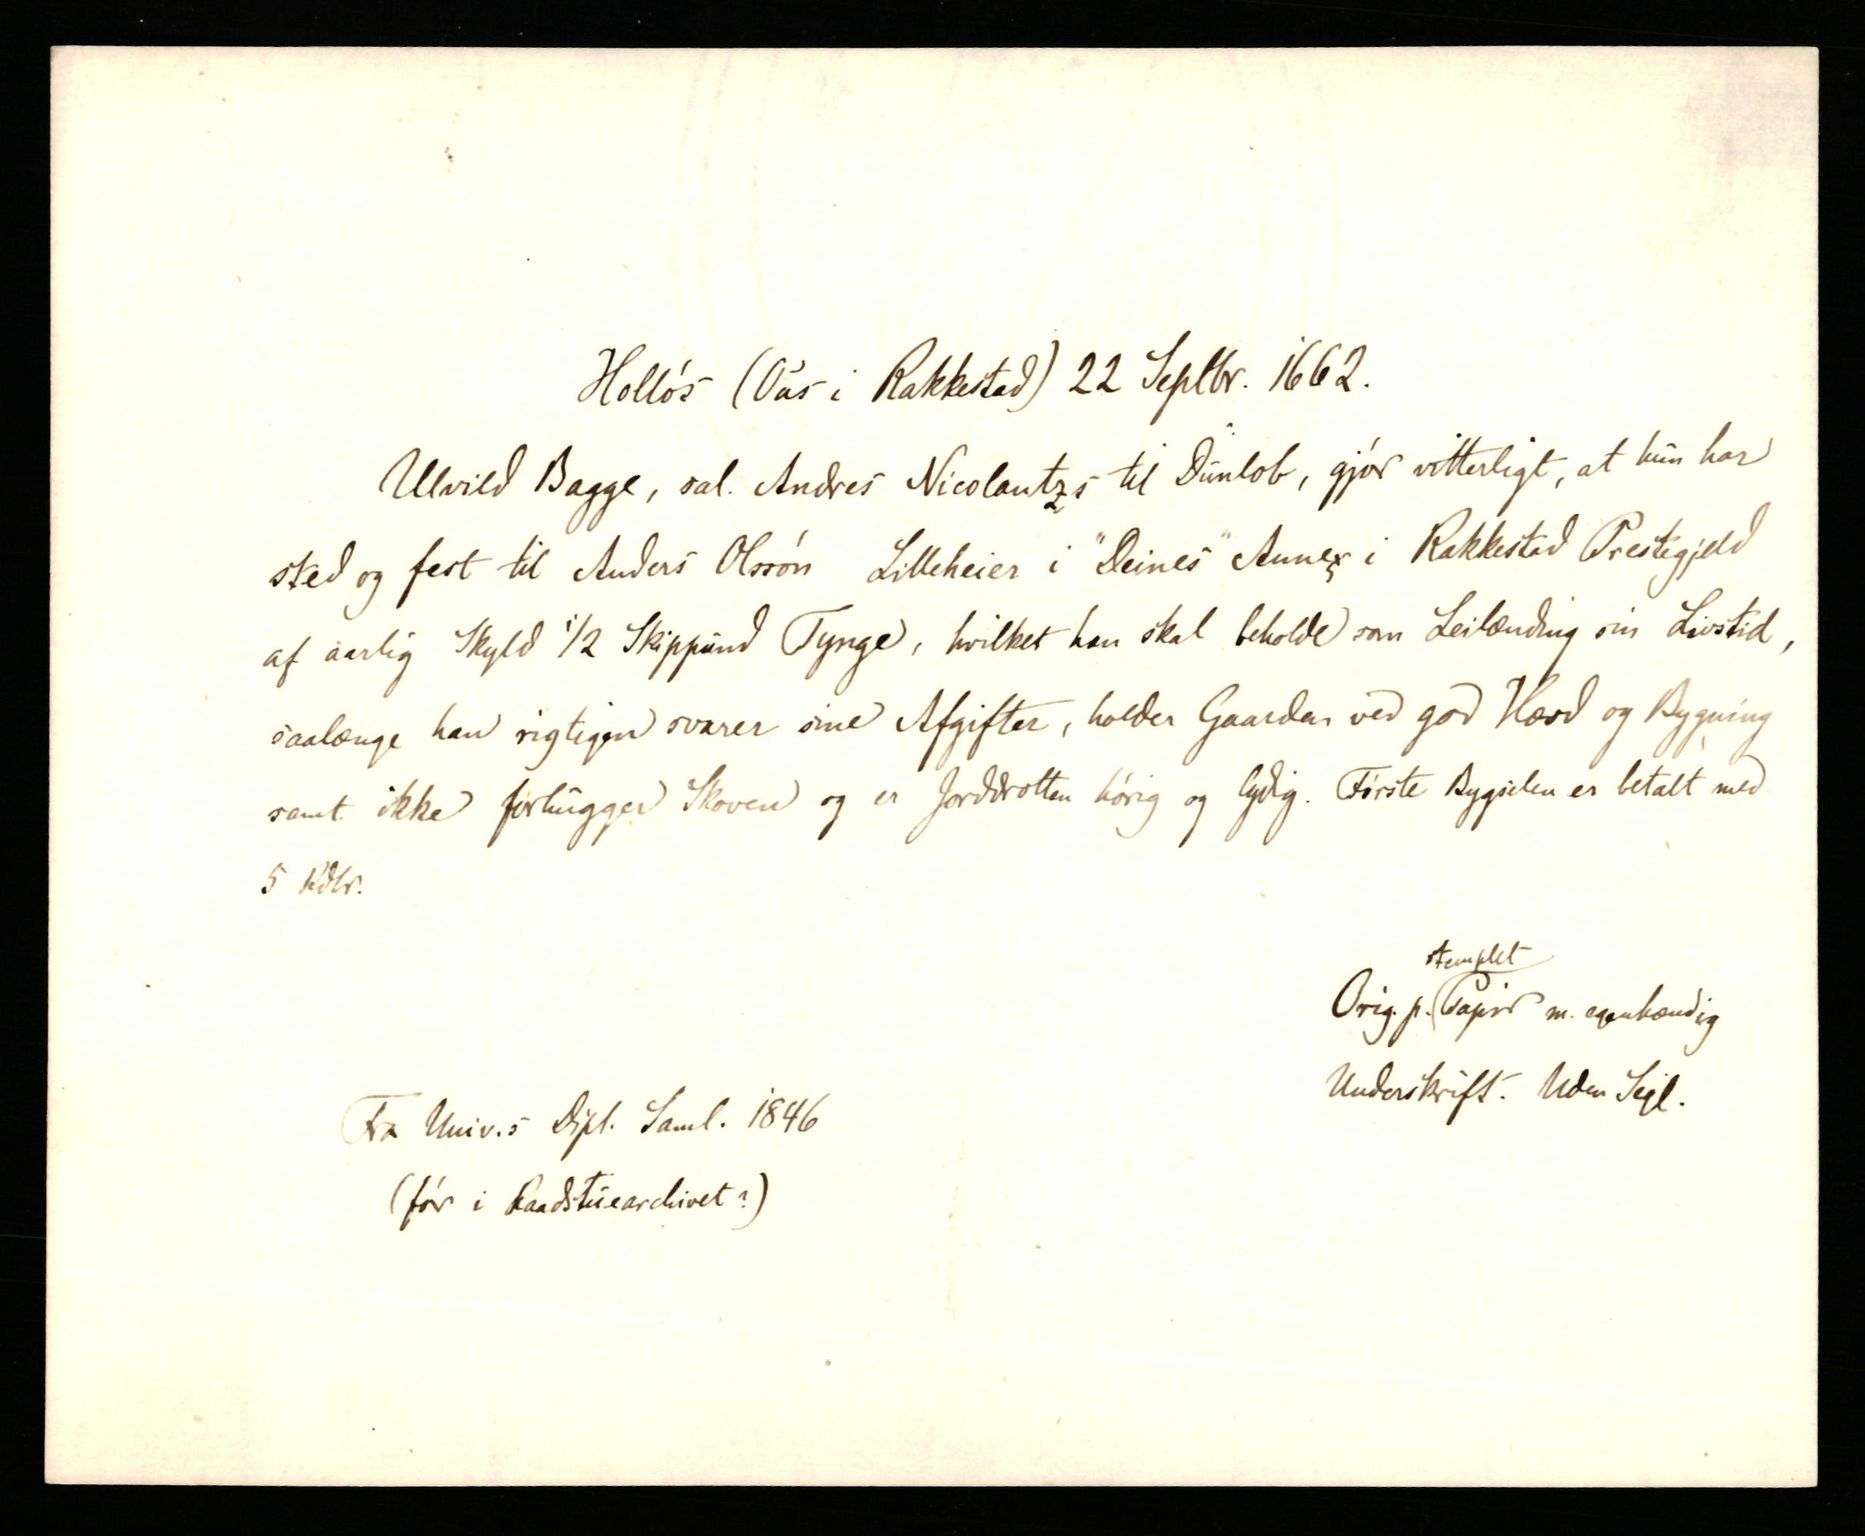 Hollós (Ous i Rakkestad) 22 Septbr. 1662.
Ulvild Bagge, sal. Andres Nicolautzs til "Dunlob", gjör vitterligt, at hun har
sted og fest til Anders Olssön Lilleheier i "Deines" Annex i Rakkestad Prestegjeld
af aarlig Skyld 1/2 Skippund Tynge, hvilket han skal beholde som Leilænding sin Livstid,
saalænge han rigtigen svarer sine Afgifter, holder Gaarden ved god Hævd og Bygning
samt ikke forhugger Skoven og er Jorddrotten hörig og lydig. Förste Bygselen er betalt med
5 Rdlr.
stemplet
Orig. p. Papir m. egenhændig
Underskrift. Uden Segl.
Fra Univ.s Dipl. Saml. 1846
(för i Raadstuearchivet?)